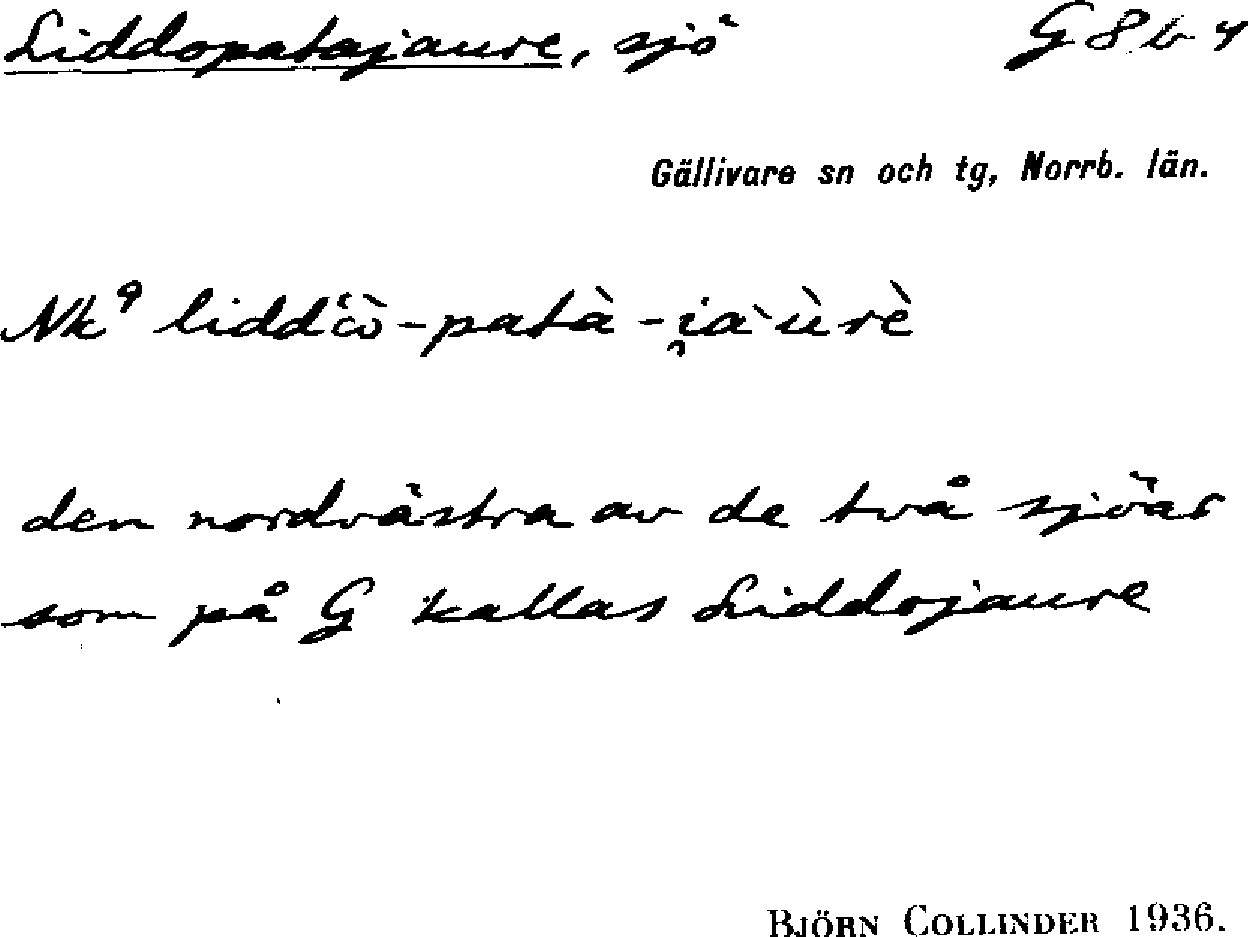 Liddopatajaure, sjö G 8 b 4
Gällivare sn och tg, Norrb. län.
Nk⁹ liddʻɷ̀-patà-i̯a`ùrè
den nordvästra av de två sjöar
som på G kallas Liddojaure
BJÖRN COLLINDER 1936.